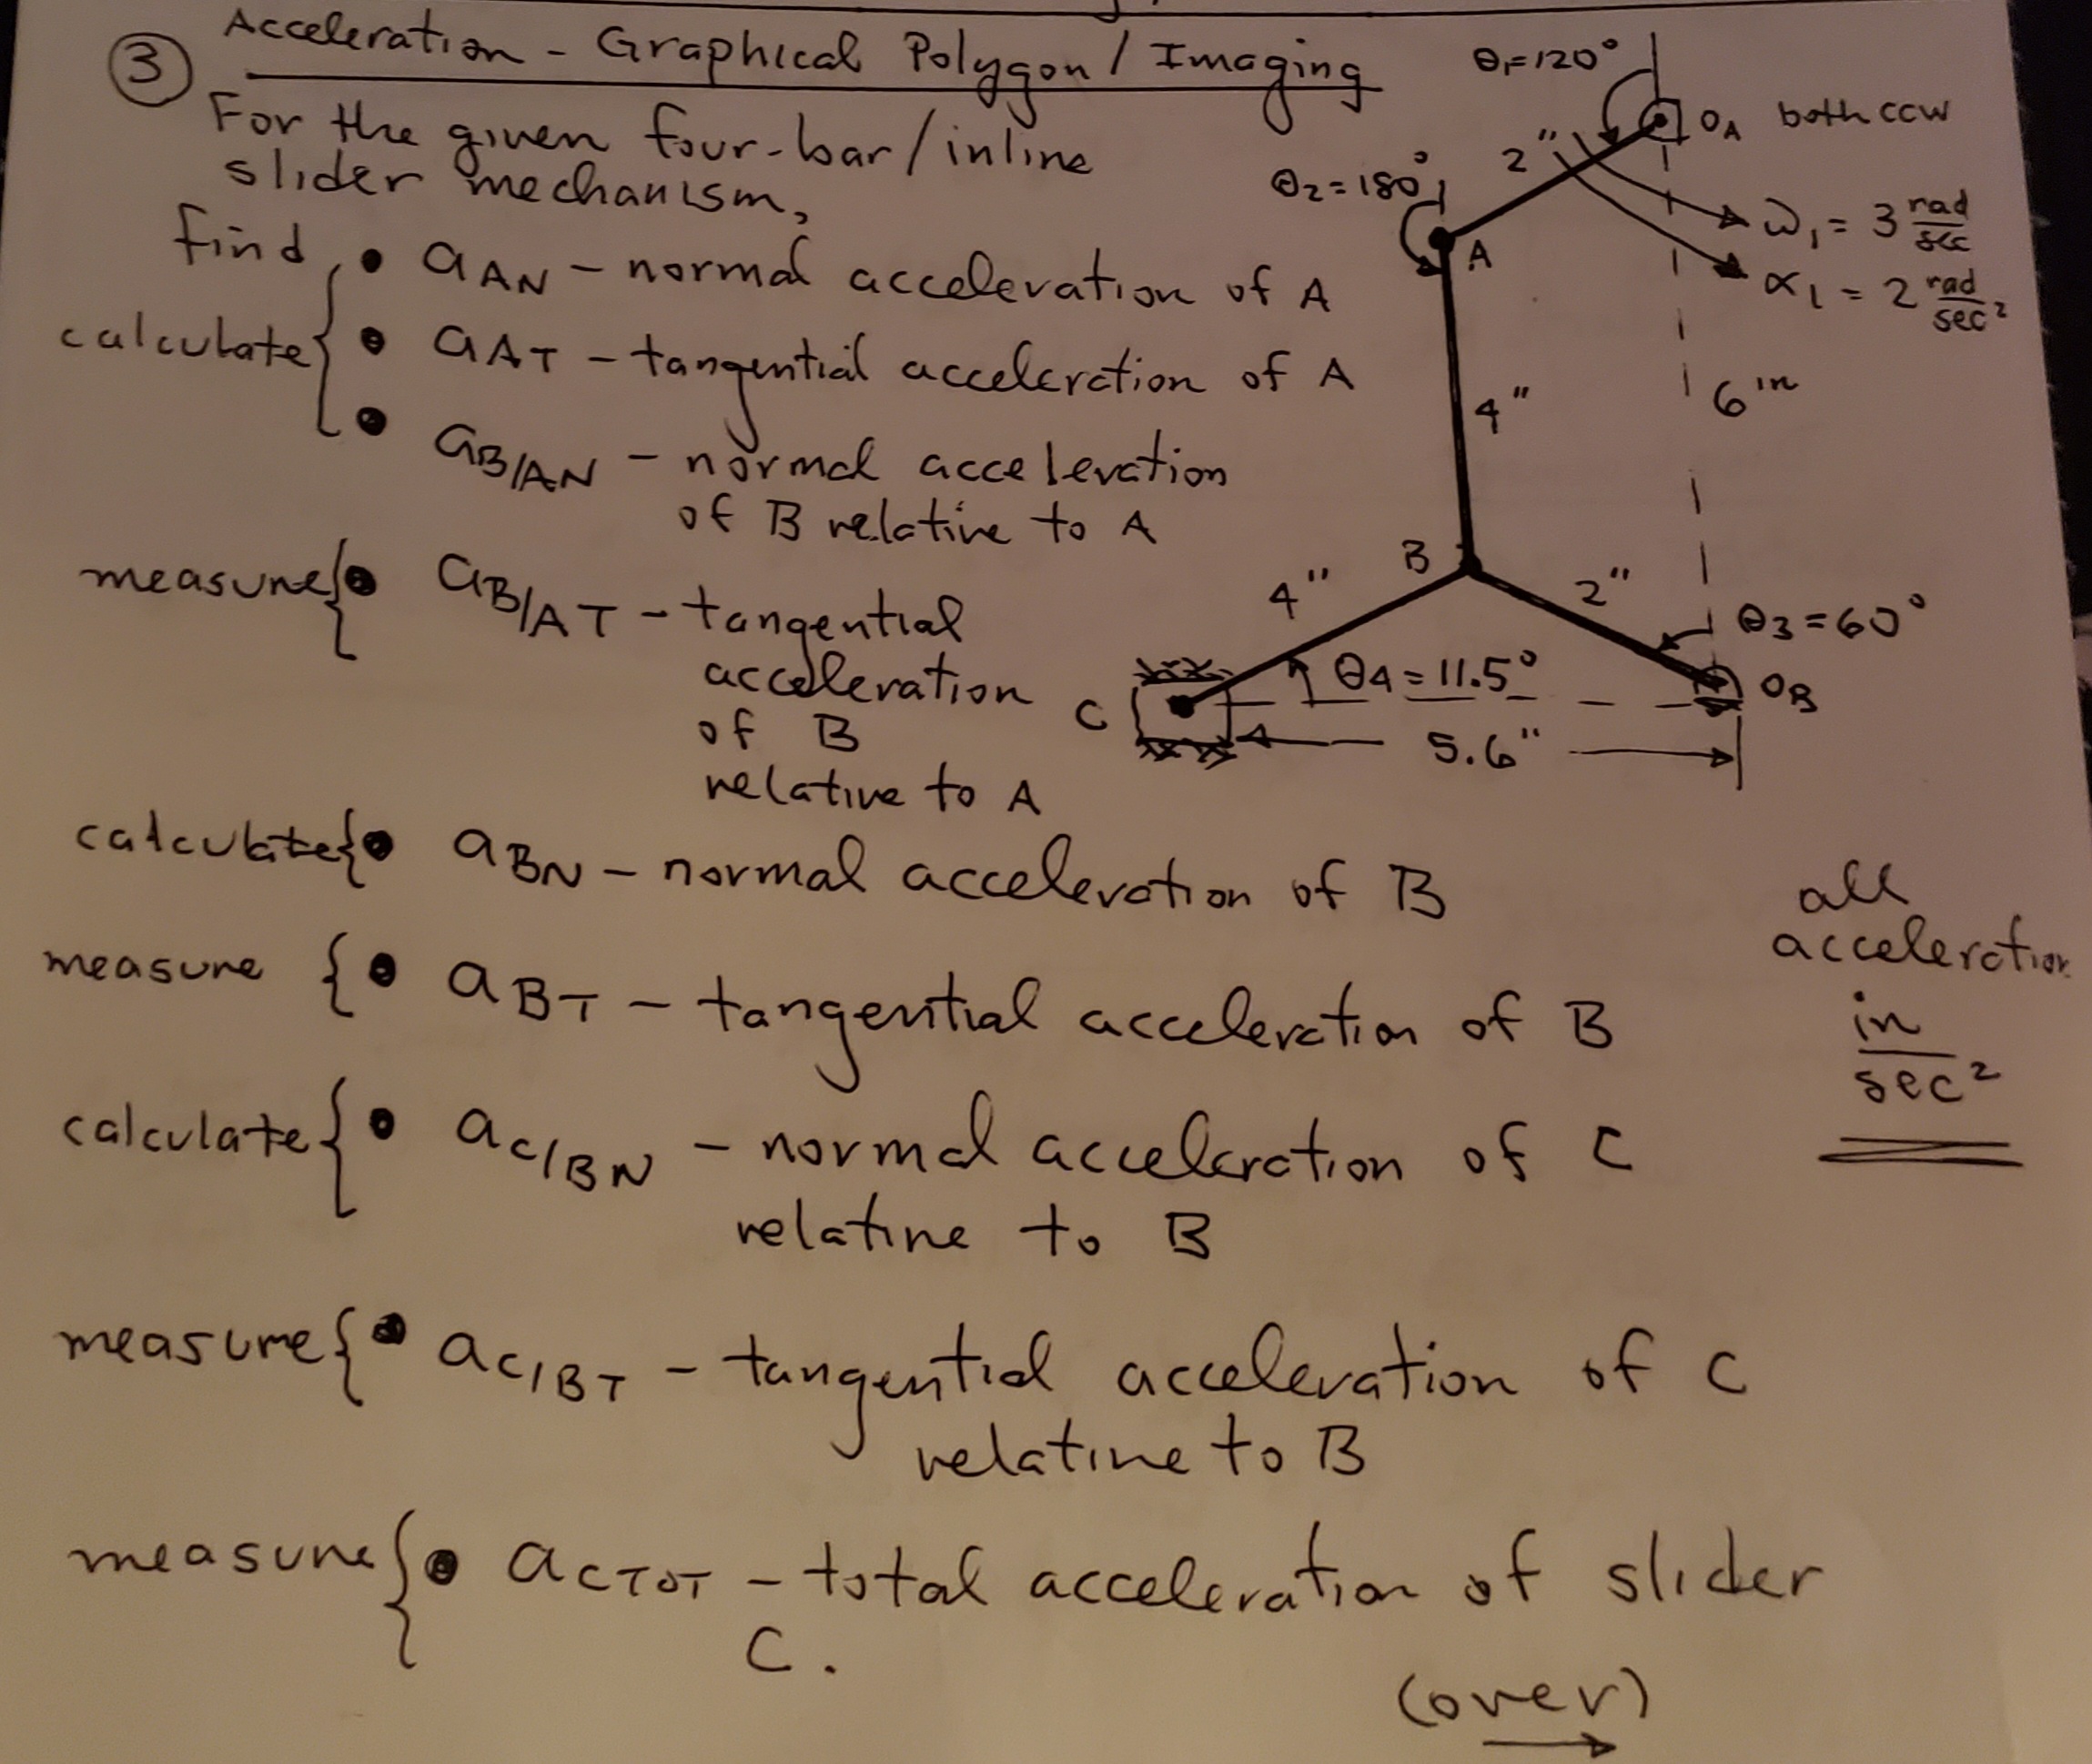 ③ Acceleration - Graphical Polygon / Imaging
For the given four-bar / inline
slider mechanism,
find
calculate { • aAN - normal acceleration of A
• aAT - tangential acceleration of A
• aB/AN - normal acceleration
of B relative to A
measure { • aB/AT - tangential
acceleration
of B
relative to A
calculate { • aBN - normal acceleration of B
measure { • aBT - tangential acceleration of B
calculate { • aC/BN - normal acceleration of C
relative to B
measure { • aC/BT - tangential acceleration of C
relative to B
measure { • aCTOT - total acceleration of slider
C.
(over)
θ1=120°
OA both ccw
2"
θ2=180°
A
ω1 = 3 rad/sec
α1 = 2 rad/sec²
4"
6 in
B
4"
2"
θ3=60°
θ4=11.5°
C
OB
5.6"
all
acceleration
in
sec²